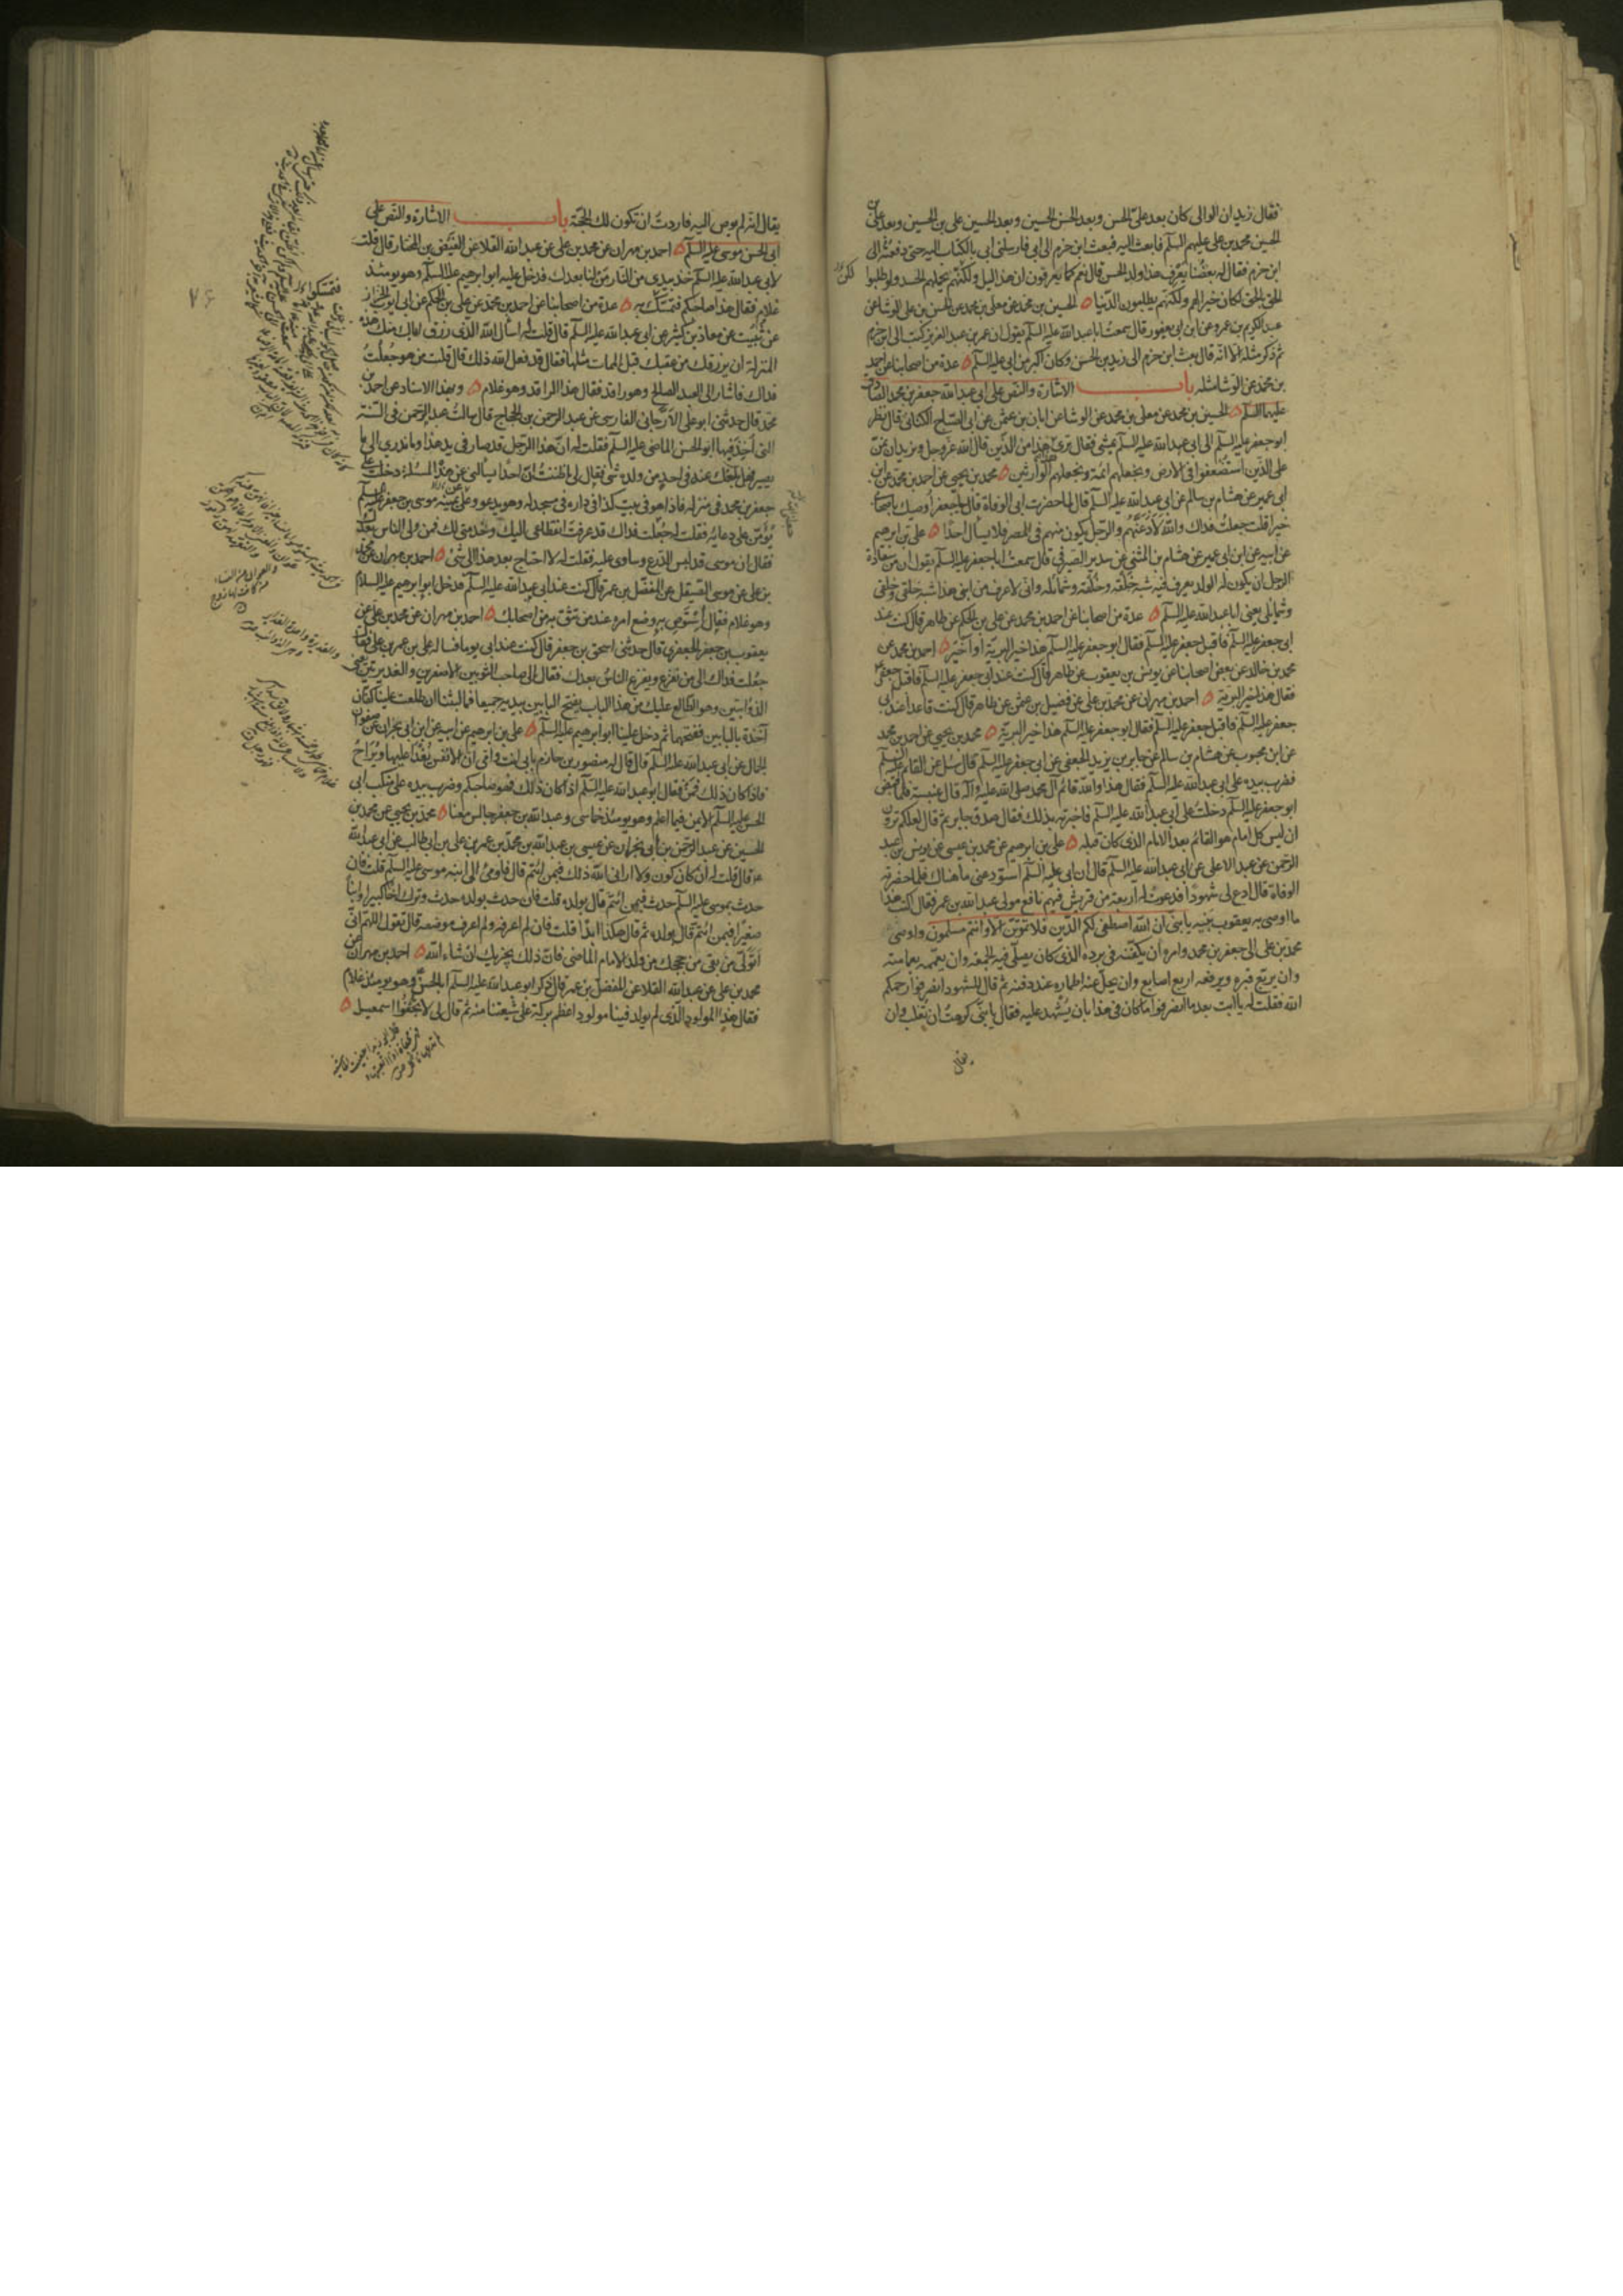 فقال زيد ان الوالى كان بعد علىّ الحسن وبعد الحسن الحسين وبعد الحسين على بن الحسين وبعد على بن
الحسين محمد بن على عليهم السلم فابعث اليه فبعث ابن حزم الى ابى فارسلنى ابى بالكتاب اليه حتى دفعته الى
ابن حزم فقال له بعضنا يعرف هذا ولد الحسن قال نعم كما يعرفون ان هذا ليل ولكنهم يحملهم الحسد ولو طلبوا
الحق بالحق لكان خيرا لهم ولكنهم يطلبون الدنيا الحسين بن محمد عن معلى بن محمد عن الحسن بن على الوشا عن
عبد الكريم بن عمرو عن ابن ابى يعفور قال سمعت ابا عبد الله عليه السلم يقول ان عمر بن عبد العزيز كتب الى ابن حزم
ثم ذكر مثله الا انه قال بعث ابن حزم الى زيد بن الحسن وكان اكبر من ابى عليه السلم عدة من اصحابنا عن احمد
بن محمد عن الوشا مثله باب الاشارة والنص على ابى عبد الله جعفر بن محمد الصادق
عليهما السلم الحسين بن محمد عن معلى بن محمد عن الوشا عن ابان بن عثمن عن ابى الصباح الكنانى قال نظر
ابو جعفر عليه السلم الى ابى عبد الله عليه السلم يمشى فقال ترى هذا هذا من الذين قال الله عز وجل ونريد ان نمن
على الذين استضعفوا فى الارض ونجعلهم ائمة ونجعلهم الوارثين محمد بن يحيى عن احمد بن محمد عن ابن
ابى عمير عن هشام بن سالم عن ابى عبد الله عليه السلم قال لما حضرت ابى الوفاة قال يا جعفر اوصيك باصحابى
خيرا قلت جعلت فداك والله لادعنهم والرجل يكون منهم فى المصر فلا يسال احدا على بن ابرهيم
عن ابيه عن ابن ابى عمير عن هشام بن المثنى عن سدير الصيرفى قال سمعت ابا جعفر عليه السلم يقول ان من سعادة
الرجل ان يكون له الولد يعرف فيه شبه خلقه وخلقه وشمائله وانى لاعرف من ابنى هذا شبه خلقى وخلقى
وشمائلى يعنى ابا عبد الله عليه السلم عدة من اصحابنا عن احمد بن محمد عن على بن الحكم عن طاهر قال كنت عند
ابى جعفر عليه السلم فاقبل جعفر عليه السلم فقال ابو جعفر عليه السلم هذا خير البرية او اخير احمد بن محمد عن
محمد بن خالد عن بعض اصحابنا عن يونس بن يعقوب عن طاهر قال كنت عند ابى جعفر عليه السلم فاقبل جعفر
فقال هذا خير البرية احمد بن مهران عن محمد بن على عن فضيل بن عثمن عن طاهر قال كنت قاعدا عند ابى
جعفر عليه السلم فاقبل جعفر عليه السلم فقال ابو جعفر عليه السلم هذا خير البرية محمد بن يحيى عن احمد بن محمد
عن ابن محبوب عن هشام بن سالم عن جابر بن يزيد الجعفى عن ابى جعفر عليه السلم قال سئل عن القائم عليه السلم
فضرب بيده على ابى عبد الله عليه السلم فقال هذا والله قائم آل محمد صلى الله عليه وآله قال عنبسة فلما قبض
ابو جعفر عليه السلم دخلت على ابى عبد الله عليه السلم فاخبرته بذلك فقال صدق جابر ثم قال لعلكم ترون
ان ليس كل امام هو القائم بعد الامام الذى كان قبله على بن ابرهيم عن محمد بن عيسى عن يونس بن عبد
الرحمن عن عبد الاعلى عن ابى عبد الله عليه السلم قال ان ابى عليه السلم استودعنى ما هناك فلما حضرته
الوفاة قال ادع لى شهودا فدعوت له اربعة من قريش فيهم نافع مولى عبد الله بن عمر فقال اكتب هذا
ما اوصى به يعقوب بنيه يا بنى ان الله اصطفى لكم الدين فلا تموتن الا وانتم مسلمون واوصى
محمد بن على الى جعفر بن محمد وامره ان يكفنه فى برده الذى كان يصلى فيه الجمعة وان يعممه بعمامته
وان يربع قبره ويرفعه اربع اصابع وان يحل عنه اطماره عند دفنه ثم قال للشهود انصرفوا رحمكم
الله فقلت له يا ابت بعد ما انصرفوا ما كان فى هذا بان يشهد عليه فقال يا بنى كرهت ان تغلب وان
يقال
يقال انه لم يوص اليه فاردت ان تكون لك الحجة باب الاشارة والنص على
ابى الحسن موسى عليه السلم احمد بن مهران عن محمد بن على عن عبد الله القلا عن الفيض بن المختار قال قلت
لابى عبد الله عليه السلم خذ بيدى من النار من لنا بعدك فدخل عليه ابو ابرهيم عليه السلم وهو يومئذ
غلام فقال هذا صاحبكم فتمسك به عدة من اصحابنا عن احمد بن محمد عن على بن الحكم عن ابى ايوب الخزاز
عن ثبيت عن معاذ بن كثير عن ابى عبد الله عليه السلم قال قلت له اسال الله الذى رزق اباك منك هذه
المنزلة ان يرزقك من عقبك قبل الممات مثلها فقال قد فعل الله ذلك قال قلت من هو جعلت
فداك فاشار الى العبد الصالح وهو راقد فقال هذا الراقد وهو غلام وبهذا الاسناد عن احمد بن
محمد قال حدثنى ابو على الارجانى الفارسى عن عبد الرحمن بن الحجاج قال سالت عبد الرحمن فى السنة
التى اخذ فيها ابو الحسن الماضى عليه السلم فقلت له ان هذا الرجل قد صار فى يد هذا وما ندرى الى ما
يصير فهل بلغك عنه فى احد من ولده شئ فقال لى ما ظننت ان احدا يسالنى عن هذه المسئلة دخلت على
جعفر بن محمد فى منزله فاذا هو فى بيت كذا فى داره فى مسجد له وهو يدعو وعلى يمينه موسى بن جعفر عليه السلم
يؤمن على دعائه فقلت له جعلت فداك قد عرفت انقطاعى اليك وخدمتى لك فمن ولى الناس بعدك
فقال ان موسى قد لبس الدرع وساوى عليه فقلت له لا احتاج بعد هذا الى شئ احمد بن مهران عن محمد
بن على عن موسى الصيقل عن المفضل بن عمر قال كنت عند ابى عبد الله عليه السلم فدخل ابو ابرهيم عليه السلام
وهو غلام فقال استوص به وضع امره عند من تثق به من اصحابك احمد بن مهران عن محمد بن على عن
يعقوب بن جعفر الجعفرى قال حدثنى اسحق بن جعفر قال كنت عند ابى يوما فساله على بن عمر بن على فقال
جعلت فداك الى من نفزع ويفزع الناس بعدك فقال الى صاحب الثوبين الاصفرين والغديرتين يعنى
الذؤابتين وهو الطالع عليك من هذا الباب يفتح البابين بيديه جميعا فما لبثنا ان طلعت علينا كفان
آخذة بالبابين ففتحهما ثم دخل علينا ابو ابرهيم عليه السلم على بن ابرهيم عن ابيه عن ابن ابى نجران عن صفوان
الجمال عن ابى عبد الله عليه السلم قال قال له منصور بن حازم بابى انت وامى ان الانفس يغدا عليها ويراح
فاذا كان ذلك فمن فقال ابو عبد الله عليه السلم اذا كان ذلك فهو صاحبكم وضرب بيده على منكب ابى
الحسن عليه السلم الايمن فيما اعلم وهو يومئذ خماسى وعبد الله بن جعفر جالس معنا محمد بن يحيى عن محمد بن
الحسين عن عبد الرحمن بن ابى نجران عن عيسى بن عبد الله بن محمد بن عمر بن على بن ابى طالب عن ابى عبد الله
قال قلت له ان كان كون ولا ارانى الله ذلك فبمن ائتم قال فاومئ الى ابنه موسى عليه السلم قلت فان
حدث بموسى عليه السلم حدث فبمن ائتم قال بولده قلت فان حدث بولده حدث وترك اخا كبيرا وابنا
صغيرا فبمن ائتم قال بولده ثم قال هكذا ابدا قلت فان لم اعرفه ولم اعرف موضعه قال تقول اللهم انى
اتولى من بقى من حججك من ولد الامام الماضى فان ذلك يجزيك ان شاء الله احمد بن مهران عن
محمد بن على عن عبد الله القلا عن المفضل بن عمر قال ذكر ابو عبد الله عليه السلم ابا الحسن وهو يومئذ غلام
فقال هذا المولود الذى لم يولد فينا مولود اعظم بركة على شيعتنا منه ثم قال لى لا تجفوا اسمعيل